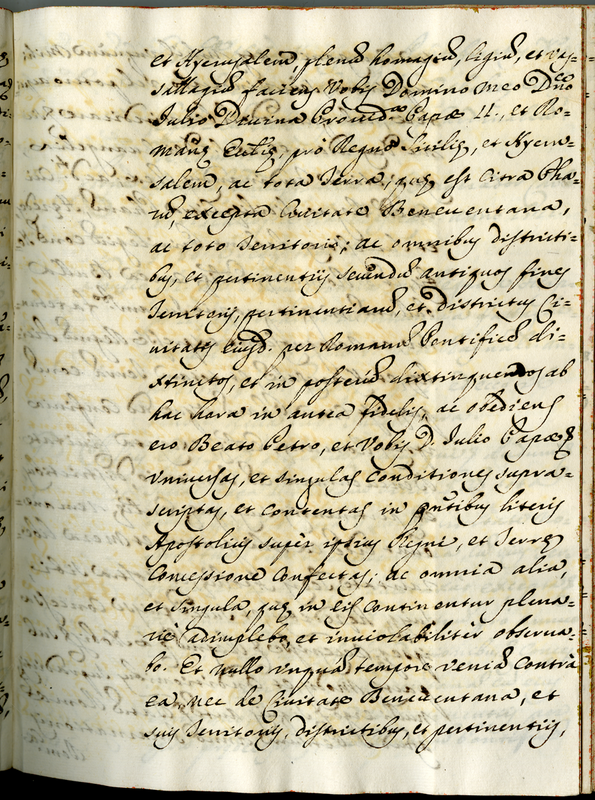 et Hyerusalem plenũ homagiũ, ligiũ, et vas=
sallagiũ faciens Vobis Domino meo Dño
Julio Divina Provid.ᵃ Papæ II., et Ro=
manę Eccl̃ię, pro Regno Sicilię, et Hyeru=
salem, ac tota Terra, quę est citra Pha=
rũ, excepta Civitate Beneventana,
ac toto Territorio; ac omnibus districti=
bus, et pertinentijs secundũ antiquos fines
Territorij, pertinentiarũ, et districtus Ci=
vitatis eiusd. per Romanũ Pontificẽ di=
stinctos, et in posterũ distinguendos ab
hac hora in antea fidelis, ac obediens
ero Beato Petro, et Vobis D. Julio Papæ
universas, et singulas conditiones supra=
scriptas, et contentas in pñtibus literis
Apostolicis super ipsius Regni, et Terrę
Concessione confectas; ac omnia alia,
et singula, quę in eis continentur plena=
riè adimplebo, et inviolabilitèr observa=
bo. Et nullo unquã tempore veniã contrà
ea, nec de Civitate Beneventana, et
suis Territorijs, districtibus, et pertinentijs,